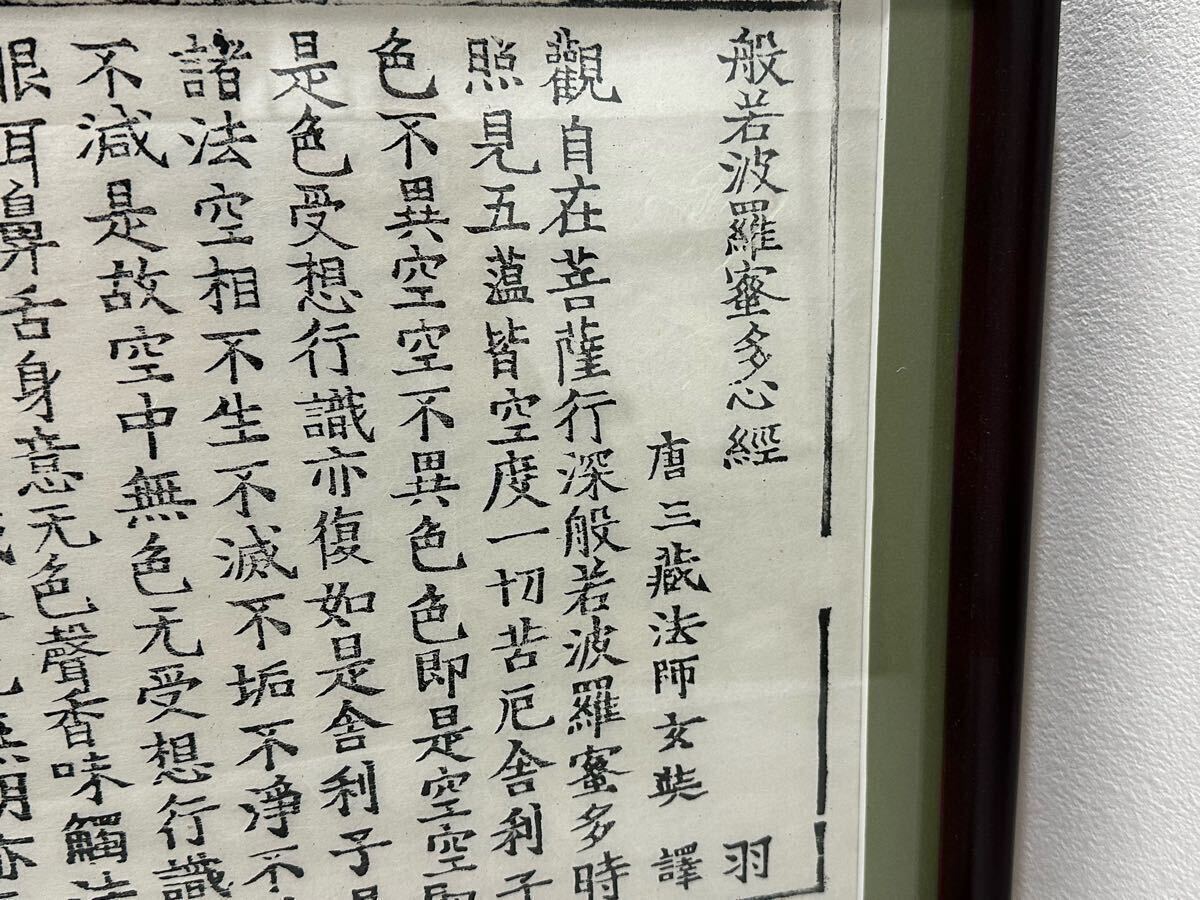 般若波羅蜜多心經 羽
唐三藏法師玄奘 譯
觀自在菩薩行深般若波羅蜜多時
照見五薀皆空度一切苦厄舍利子
色不異空空不異色色即是空空即
是色受想行識亦復如是舍利子是
諸法空相不生不滅不垢不淨不
不減是故空中無色无受想行識
眼耳鼻舌身意无色聲香味觸法
無明亦